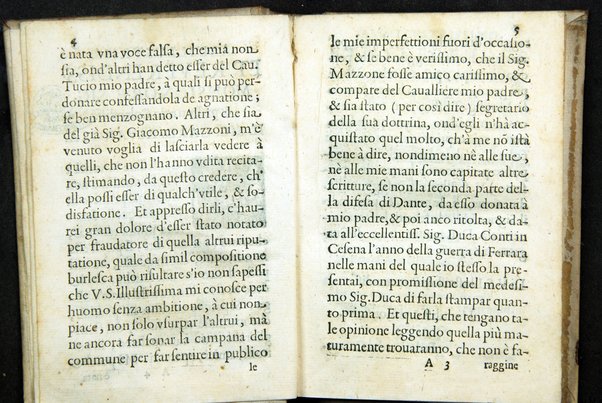 4
è nata vna voce falsa, che mia non
sia, ond'altri han detto esser del Cau.
Tucio mio padre, à quali si può per-
donare confessandola de agnatione;
se ben menzognano. Altri, che sia
del già Sig. Giacomo Mazzoni, m'è
venuto voglia di lasciarla vedere à
quelli, che non l'hanno vdita recita-
re, stimando, da questo credere, ch'
ella possi esser di qualch'vtile, & so-
disfatione. Et appresso dirli, c'hau-
rei gran dolore d'esser stato notato
per fraudatore di quella altrui ripu-
tatione, quale da simil compositione
burlesca può risultare s'io non sapessi
che V.S. Illustrissima mi conosce per
huomo senza ambitione, à cui non
piace, non solo vsurpar l'altrui, mà
ne ancora far sonar la campana del
commune per far sentire in publico
le
5
le mie imperfettioni fuori d'occasio-
ne, & se bene è verissimo, che il Sig.
Mazzone fosse amico carissimo, &
compare del Caualliere mio padre,
& sia stato (per così dire) segretario
della sua dottrina, ond'egli n'hà ac-
quistato quel molto, ch'à me nõ istà
bene à dire, nondimeno nè alle sue,
nè alle mie mani sono capitate altre
scritture, se non la seconda parte del-
la difesa di Dante, da esso donata à
mio padre, & poi anco ritolta, & da-
ta all'eccellentiss. Sig. Duca Conti in
Cesena l'anno della guerra di Ferrara
nelle mani del quale io stesso la pre-
sentai, con promissione del medesi-
mo Sig. Duca di farla stampar quan-
to prima. Et questi, che tengano ta-
le opinione leggendo quella più ma-
turamente trouaranno, che non è fa-
A 3 raggine